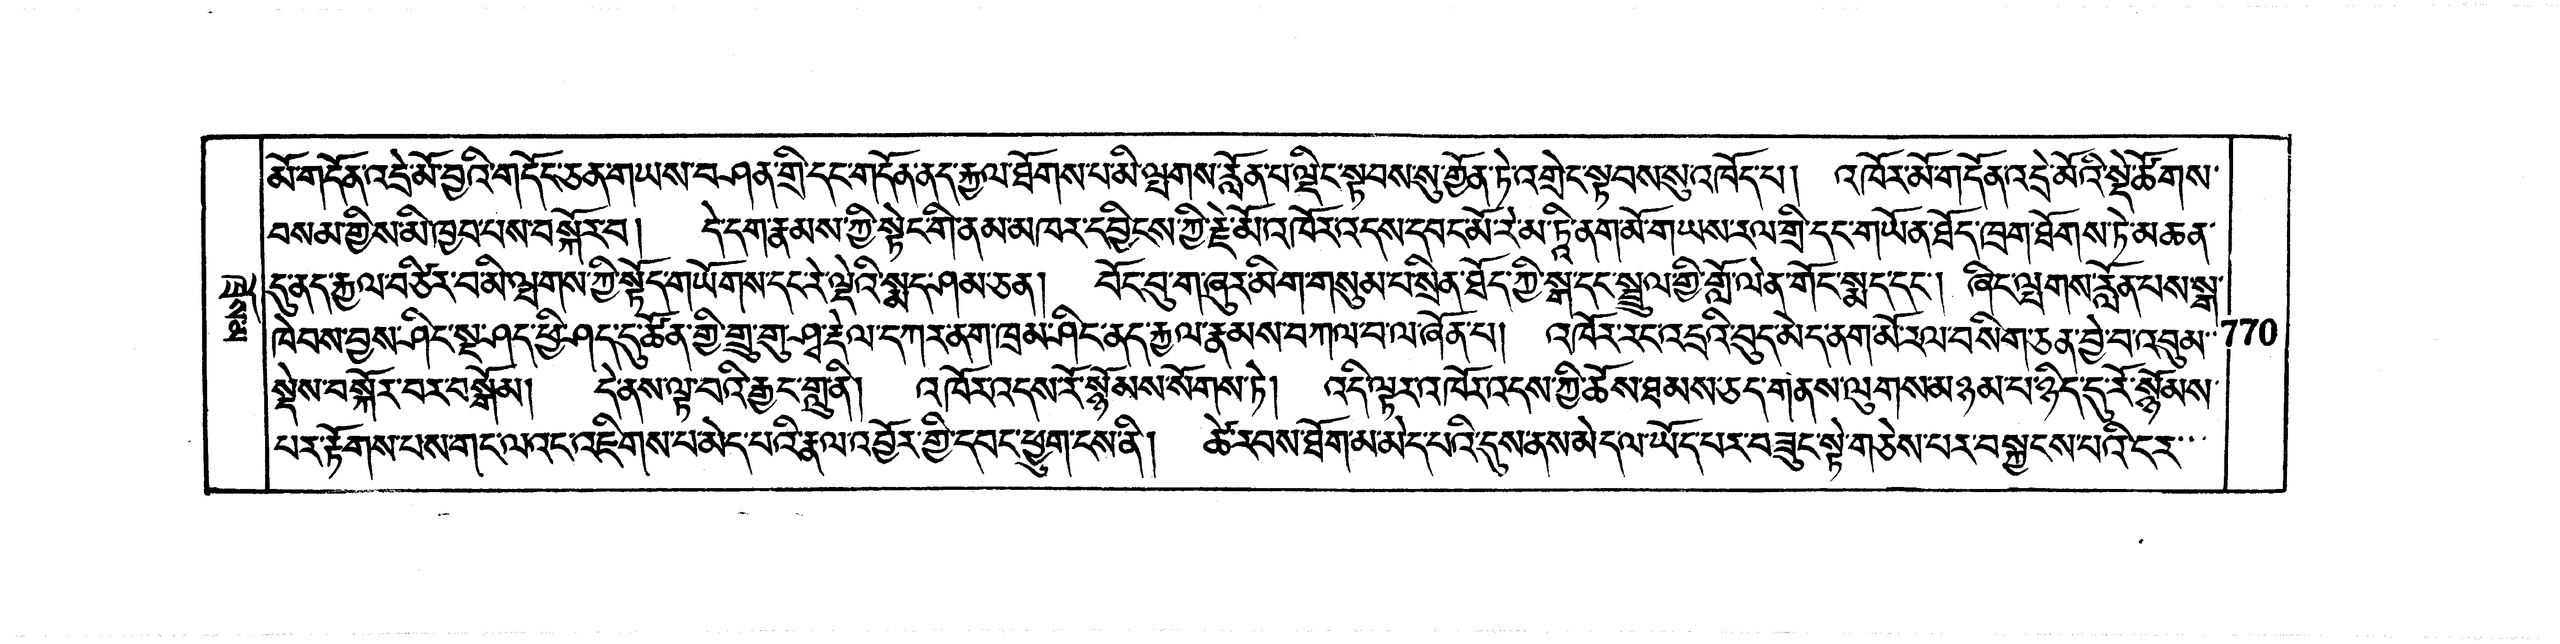 མོ་གདོན་འདྲེ་མོ་བྱའི་གདོང་ཅན་གཡས་བ་ཤན་གྲི་དང་གདོན་ནད་རྐྱལ་ཐོགས་པ་མི་ལྤགས་རློན་པ་ལྡིང་སྟབས་སུ་གྱོན་ཏེ་འགྲེང་སྟབས་སུ་འཁོད་པ། འཁོར་མོ་གདོན་འདྲེ་མོའི་སྡེ་ཚོགས་
བསམ་གྱིས་མི་ཁྱབ་པས་བསྐོར་བ། དེ་དག་རྣམས་ཀྱི་སྟེང་གི་ནམ་མཁར་དབྱིངས་ཀྱི་རྗེ་མོ་འཁོར་འདས་དབང་མོ་རེ་མ་ཏཱི་ནག་མོ་གཡས་རལ་གྲི་དང་གཡོན་ཐོད་ཁྲག་ཐོགས་ཏེ་མཆན་
དུ་ནད་རྐྱལ་བཙིར་བ་མི་ལྤགས་ཀྱི་སྟོད་གཡོགས་དང་རེ་ལྡེའི་སྨད་ཤམ་ཅན། བོང་བུ་གཞུར་མིག་གསུམ་པ་སྲིན་ཐོད་ཀྱི་སྒ་དང་སྦྲུལ་གྱི་གློ་ལེན་གོང་སྨད་དང་། ཞིང་ལྤགས་རློན་པས་སྒ་
ཁེབས་བྱས་ཤིང་སྔ་ཤད་ཕྱི་ཤད་དུ་ཚོན་གྱི་གྲུ་གུ་ཤྭ་རྡེལ་དཀར་ནག་ཁྲམ་ཤིང་ནད་རྐྱལ་རྣམས་བཀལ་བ་ལ་ཞོན་པ། འཁོར་རང་འདྲའི་བུད་མེད་ནག་མོ་རལ་བ་སིག་ཅན་བྱེ་བ་འབུམ་
སྡེས་བསྐོར་བར་བསྒོམ། དེ་ནས་ལྟ་བའི་རྒྱང་གླུ་ནི། འཁོར་འདས་རོ་སྙོམས་སོགས་ཏེ། འདི་ལྟར་འཁོར་འདས་ཀྱི་ཆོས་ཐམས་ཅད་གནས་ལུགས་མཉམ་པ་ཉིད་དུ་རོ་སྙོམས་
པར་རྟོགས་པས་གང་ལའང་འཇིགས་པ་མེད་པའི་རྣལ་འབྱོར་གྱི་དབང་ཕྱུག་ངས་ནི། ཚེ་རབས་ཐོག་མ་མེད་པའི་དུས་ནས་མེད་ལ་ཡོད་པར་བཟུང་སྟེ་གཅེས་པར་བསྐྱངས་པའི་ངར་
770